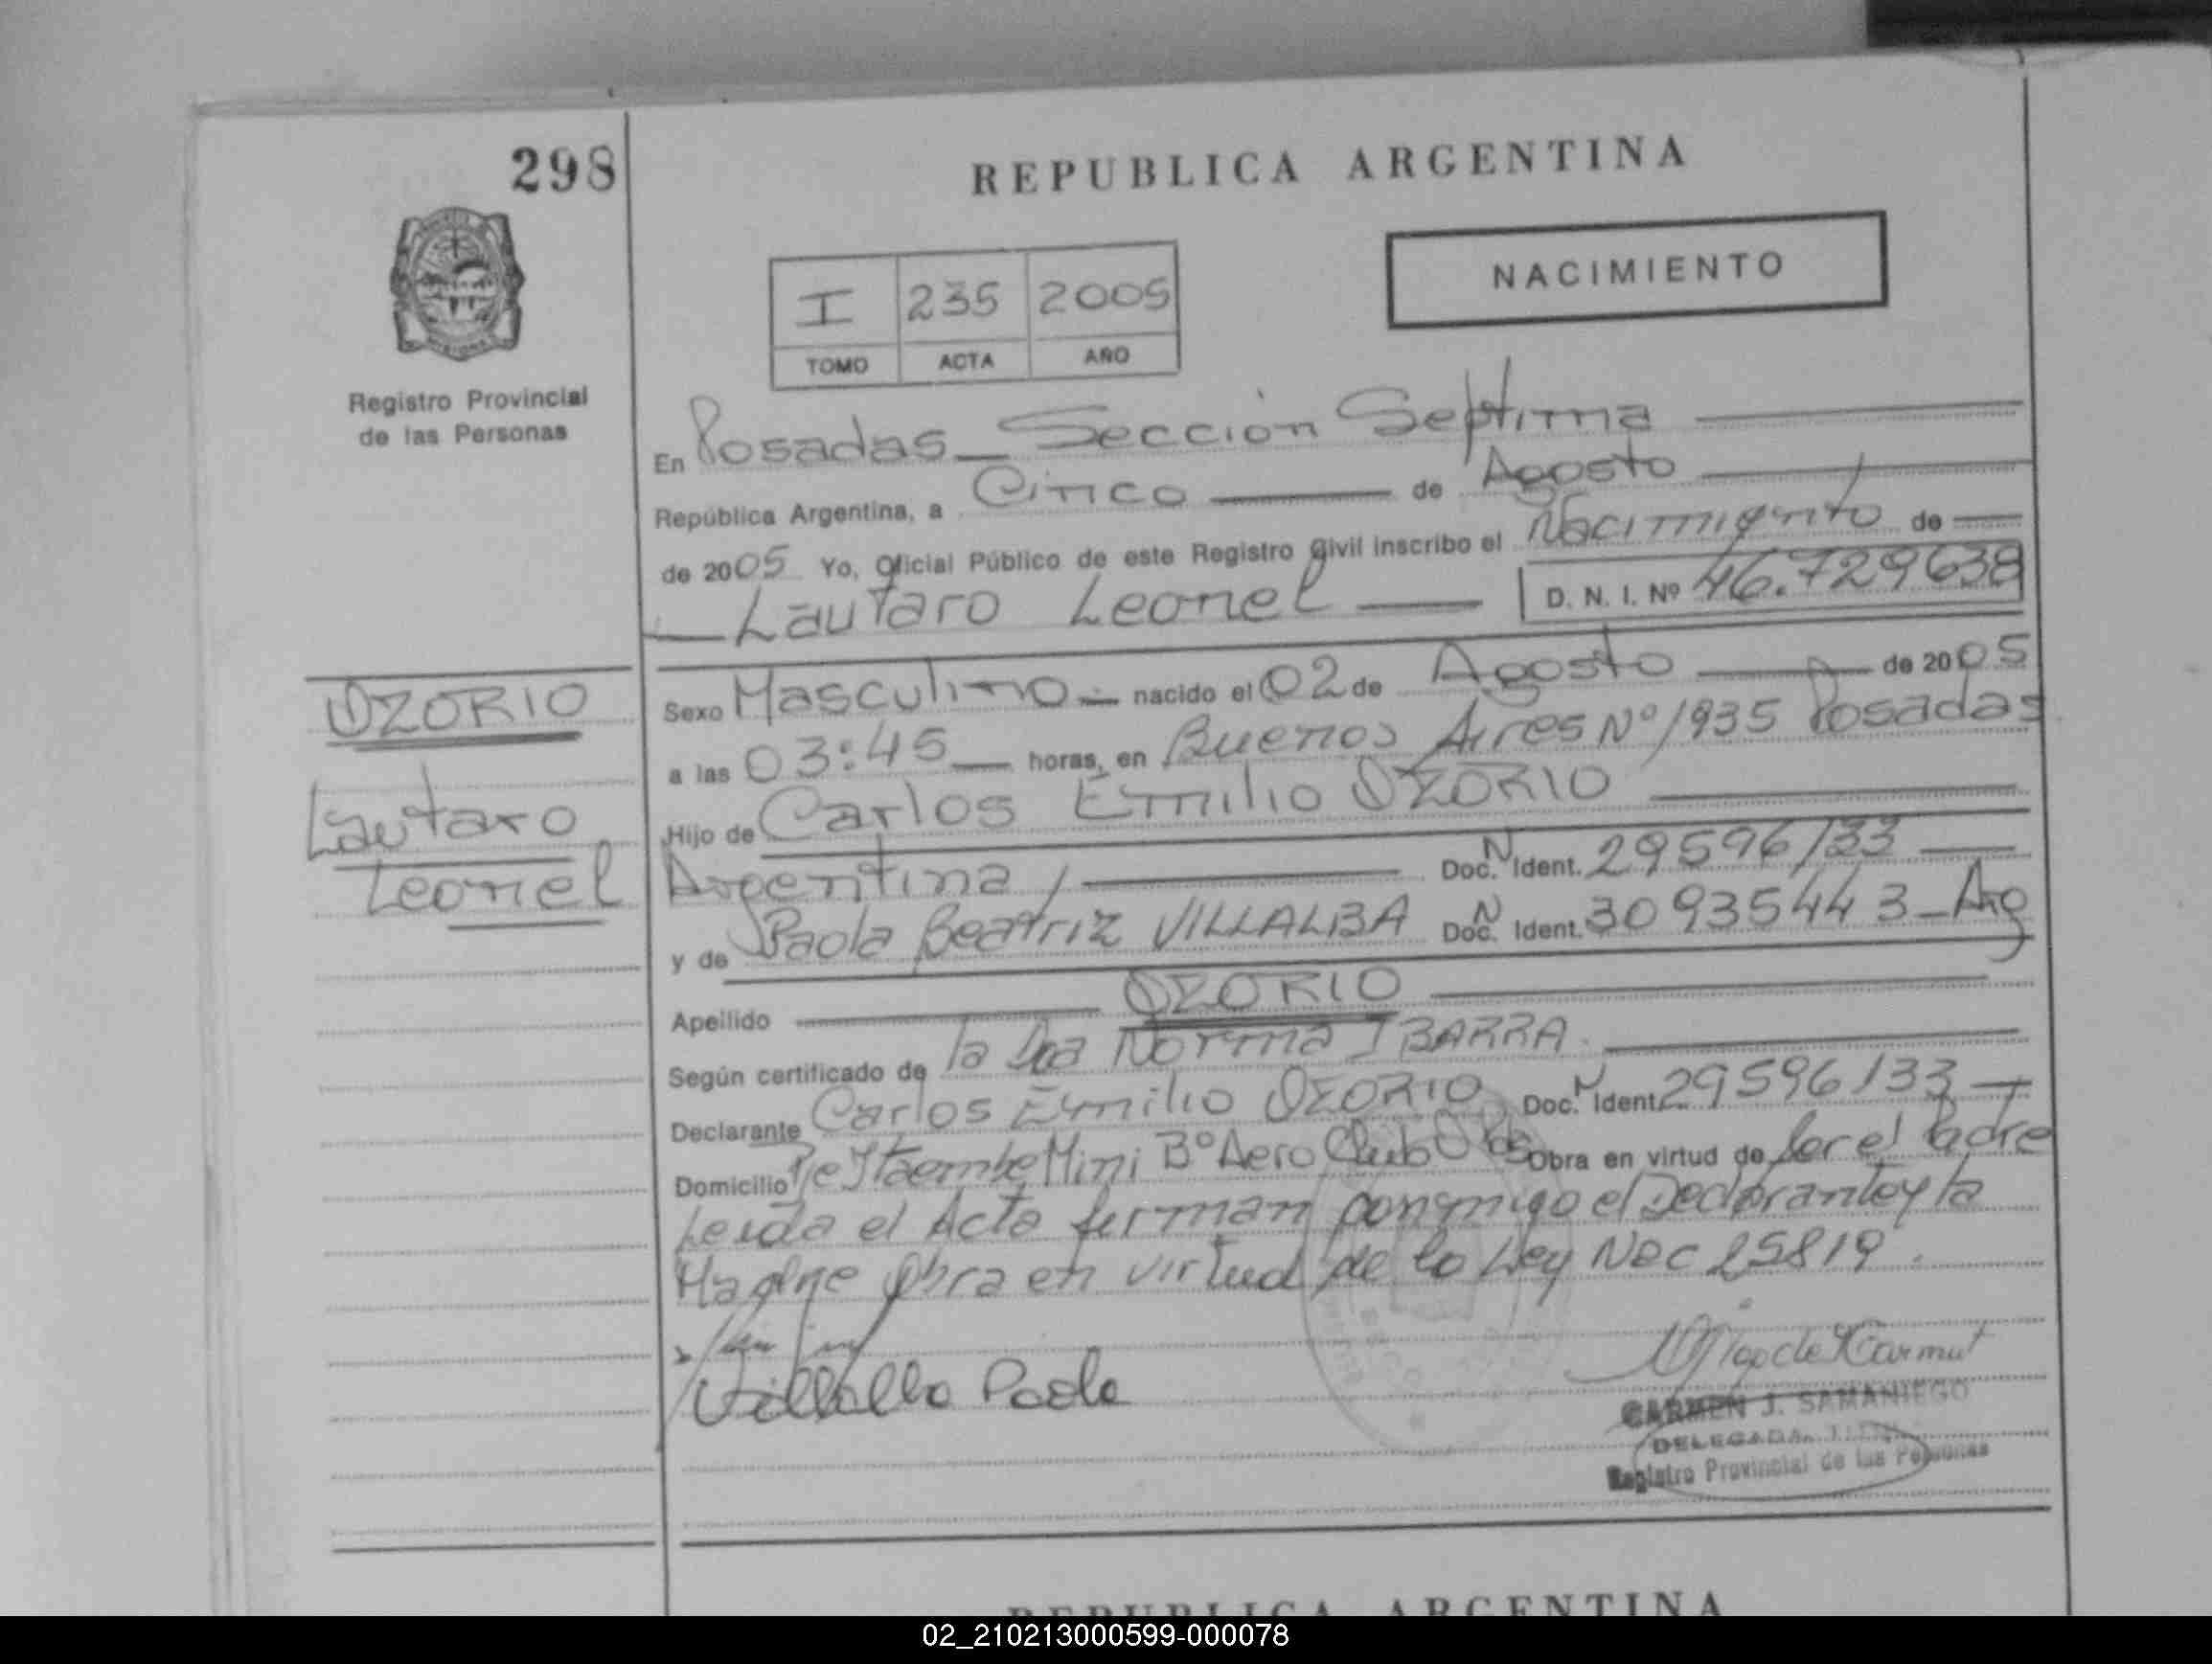 298
REPUBLICA ARGENTINA
NACIMIENTO
I 235 2005
TOMO ACTA AÑO
Registro Provincial
de las Personas
En Posadas - Sección Septima
República Argentina, a Cinco de Agosto
de 2005 Yo, Oficial Público de este Registro Civil inscribo el Nacimiento de
Lautaro Leonel D. N. I. Nº 46.729638
OZORIO
Lautaro
Leonel
Sexo Masculino nacido el 02 de Agosto de 2005
a las 03:45 horas, en Buenos Aires Nº 1935 Posadas
Hijo de Carlos Emilio OZORIO
Argentina Doc. N Ident. 29596133
y de Paola Beatriz VILLALBA Doc. N Ident. 30935443 - Arg
Apellido OZORIO
Según certificado de la Dra Norma IBARRA.
Declarante Carlos Emilio OZORIO Doc. N Ident. 29596133
Domicilio Itaembe Mini Bº Aero Club Obra en virtud de Ser el Padre
Leida el Acta firman conmigo el Declarante y la
Madre Obra en virtud de la Ley Nac 25819.
Villalba Paola
CARMEN J. SAMANIEGO
DELEGADA
Registro Provincial de las Personas
REPUBLICA ARGENTINA
02_210213000599-000078